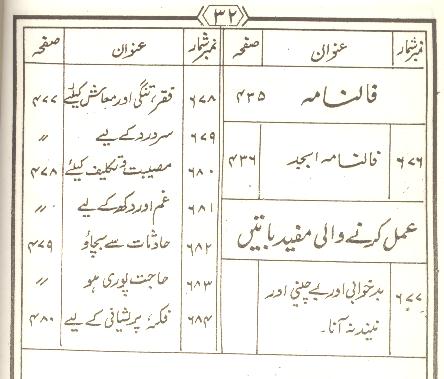 ۳۲
نمبر شمار عنوان صفحہ
فالنامہ ۴۳۵
۶۷۶ فالنامہ ابجد ۴۳۶
عمل کرنے والی مفید باتیں
۶۷۷ بدخوابی اور بے چینی اور
نیند نہ آنا۔
نمبر شمار عنوان صفحہ
۶۷۸ فقر، تنگی اور معاش کیلئے ۴۷۷
۶۷۹ سردرد کے لیے 〃
۶۸۰ مصیبت و تکلیف کیلئے ۴۷۸
۶۸۱ غم اور دکھ کے لیے 〃
۶۸۲ حادثات سے بچاؤ ۴۷۹
۶۸۳ حاجت پوری ہو 〃
۶۸۴ فکر، پریشانی کے لیے ۴۸۰